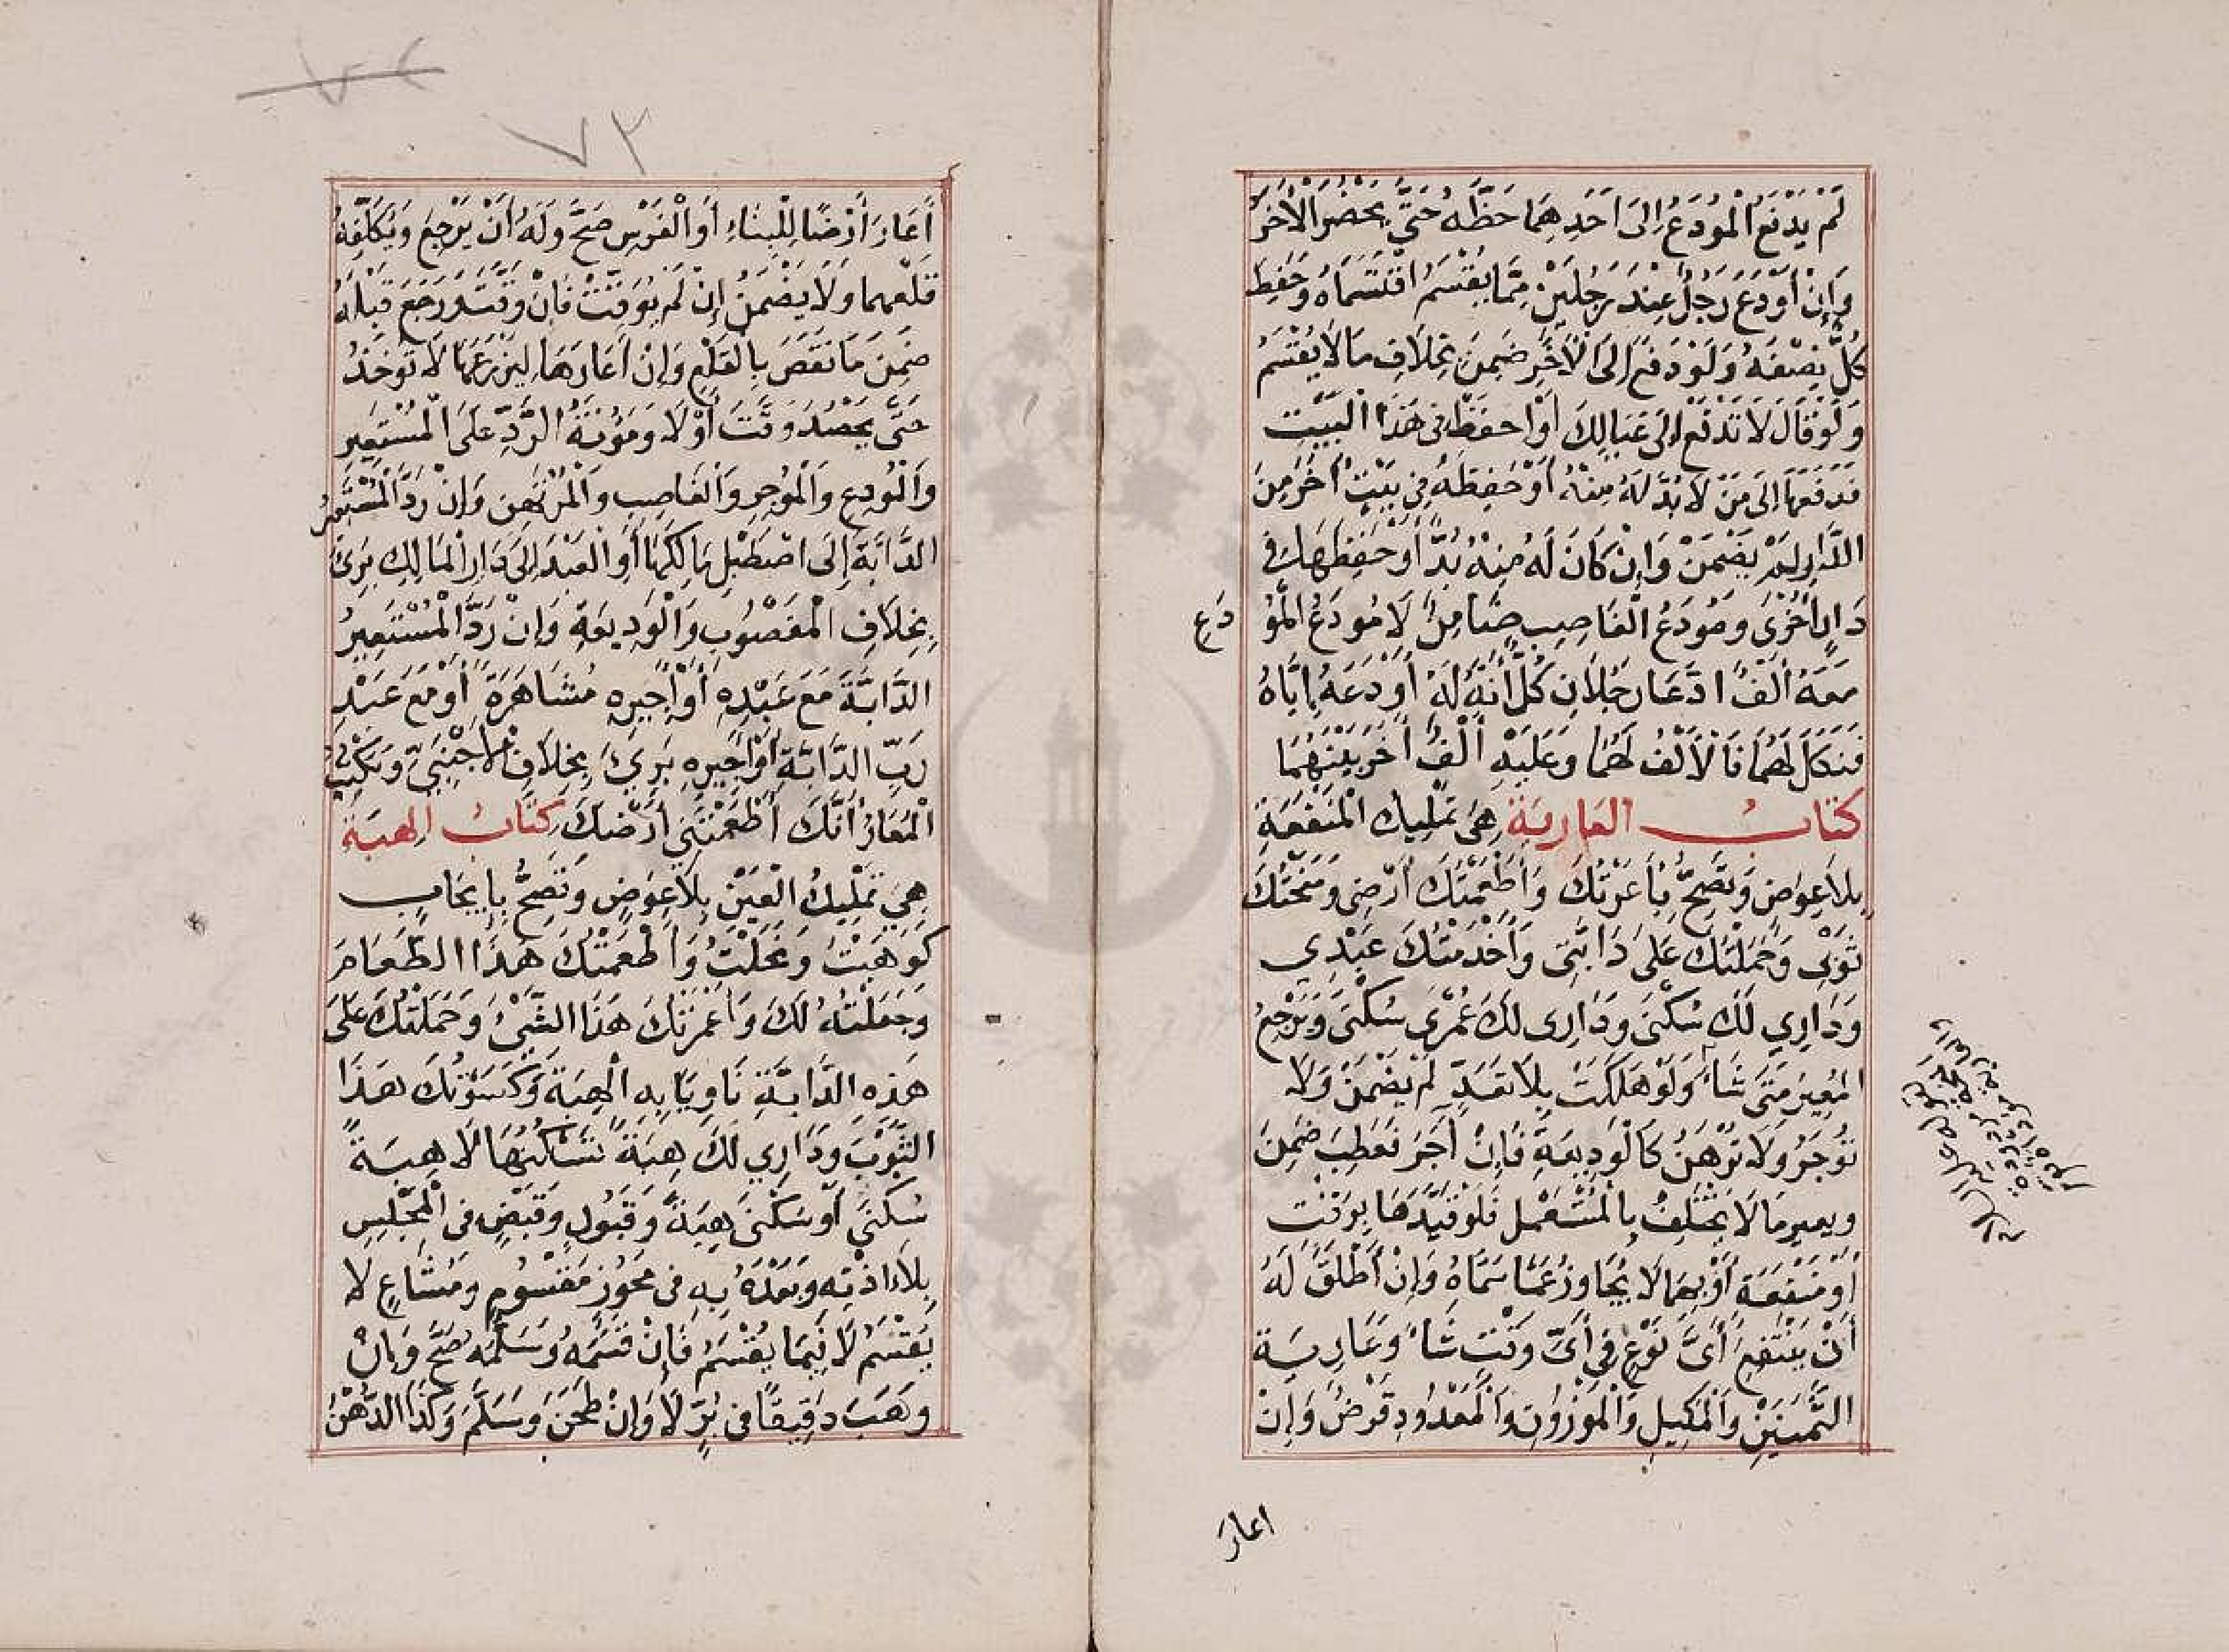 لَمْ يَدْفَعْ الْمُودَعُ إِلَى أَحَدِهِمَا حَظَّهُ حَتَّى يَحْضُرَ الْأَخَرَ
وَإِنْ أَوْدَعَ رَجُلٌ عِنْدَ رَجُلَيْنِ مِمَّا يُقْسَمُ اقْتَسَمَاهُ وَحَفِظَ
كُلٌّ نِصْفَهُ وَلَوْ دَفَعَ إِلَى الْأَخَرِ ضَمِنَ بِخِلَافِ مَا لَا يُقْسَمُ
وَلَوْ قَالَ لَا تَدْفَعْ إِلَى عَيَالِكَ أَوْ احْفَظْ فِى هَذَا الْبَيْتِ
فَدَفَعَهَا إِلَى مَنْ لَا بُدَّ لَهُ مِنْهُ أَوْ حَفِظَهُ فِي بَيْتٍ أَخَرَ مِنَ
الدَّارِ لَمْ يَضْمَنْ وَإِنْ كَانَ لَهُ مِنْهُ بُدٌّ أَوْ حَفِظَهَا فِى
دَارٍ أُخْرَى وَمُودَعُ الْغَاصِبِ ضَامِنٌ لَا مُودَعُ الْمُوْ دَعِ
مَعَهُ أَلْفٌ ادَّعَا رَجُلَانِ كُلٌّ أَنَّهُ لَهُ أَوْدَعَهُ إِيَّاهُ
فَنَكَلَ لَهُمَا فَالْأَلْفُ لَهُمَا وَعَلَيْهِ أَلْفٌ أَخَرُ بَيْنَهُمَا
كتابُ العَارِيَةِ هِىَ تَمْلِيكُ الْمَنْفَعَةِ
بِلَا عِوَضٍ وَتَصِحُّ بِأَعَرْتُكَ وَأَطْعَمْتُكَ أَرْضِى وَمَنَحْتُكَ
ثَوْبِى وَحَمَلْتُكَ عَلَى دَابَّتِى وَأَخْدَمْتُكَ عَبْدِي
وَدَارِي لَكَ سُكْنَى وَدَارِى لَكَ عُمْرَى سُكْنَى وَيَرْجِعُ
الْمُعِيرُ مَتَى شَاءَ وَلَوْ هَلَكَتْ بِلَا تَعَدٍّ لَمْ يَضْمَنْ وَلَا
تُوجَرُ وَلَا تُرْهَنُ كَالْوَدِيعَةِ فَإِنْ أَجَرَ فَعَطِبَ ضَمِنَ
وَيعير مَا لَا يَخْتَلِفُ بِالْمُسْتَعْمِل فَلَوْ قَيَّدَهَا بِوَقْتٍ
أَوْ مَنْفَعَةٍ أَوْ بِهِمَا لَا يُجَاوِزُ عَمَّا سَمَّاهُ وَإِنْ أَطْلَقَ لَهُ
أَنْ يَنْتَفِعَ أَىَّ نَوْعٍ فِي أَىِّ وَقْتٍ شَاءَ وَعَارِيَة
الثَّمَنَيْنِ وَالْمَكِيلِ وَالْمَوْزُونِ وَالْمَعْدُودِ قَرْضٌ وَإِنْ
اعارَ
٧٢
٧٣
أَعَارَ أَرْضًا لِلْبِنَاءِ أَوْ الْغَرْسِ صَحَّ وَلَهُ أَنْ يَرْجِعَ وَيُكَلِّفَهُ
قَلْعَهما وَلَا يَضْمَنُ إِنْ لَمْ يُوَقِّتْ فَإِنْ وَقَّتَ وَرَجَعَ قَبْلَهُ
ضَمِنَ مَا نَقَصَ بِالْقَلْعِ وَإِنْ أَعَارَهَا لِيَزْرَعَهَا لَا تُوخَذُ
حَتَّى يَحْصُدَ وَقَّتَ أَوْ لَا وَمَوُنَةُ الرَّدِّ عَلَى الْمُسْتَعِيرِ
وَالْمُودِعِ وَالْمُوجِرِ وَالْغَاصِبِ وَالْمُرْتَهِنِ وَإِنْ رَدَّ الْمُسْتَعِيرُ
الدَّابَّةَ إِلَى اصْطَبْلِ مَالِكِهَا أَوْ الْعَبْدَ إِلَى دَارِ الْمَالِكِ بَرِئَ
بِخِلَافِ الْمَغْصُوبِ وَالْوَدِيعَةِ وَإِنْ رَدَّ الْمُسْتَعِيرُ
الدَّابَّةَ مَعَ عَبْدِهِ أَوْ أَجِيرِهِ مُشَاهَرَةً أَوْ مَعَ عَبْدِ
رَبِّ الدَّابَّةِ أَوْ أَجِيرِهِ بَرِئَ بِخِلَافِ الْأَجْنَبِيِّ وَيَكْتُبُ
الْمُعَارُ أَنَّكَ أَطْعَمْتَنِي أَرْضَكَ كِتَابُ الهِبَةِ
هِيَ تَمْلِيكُ الْعَيْنِ بِلَا عِوَضٍ وَتَصِحُّ بِإِيجَابٍ
كَوَهَبْتُ وَنَحَلْتُ وَأَطْعَمْتُكَ هَذَا الطَّعَامَ
وَجَعَلْتُهُ لَكَ وَأَعْمَرْتُكَ هَذَا الشَّىْءَ وَحَمَلْتُكَ عَلَى
هَذِهِ الدَّابَّةِ نَاوِيًا بِهِ الْهِبَةَ وَكَسَوْتُكَ هَذَا
الثَّوْبَ وَدَارِي لَكَ هِبَةً تَسْكُنُهَا لَا هِبَةً
سُكْنَى أَوْ سُكْنَى هِبَةً وَقَبُولٍ وَقَبْضٍ فِى الْمَجْلِسِ
بِلَا اذْنِه وَبَعْدَهُ بِهِ فى مَحُوزٍ مَقْسُومٍ وَمُشَاعٍ لَا
يُقْسَمُ لَا فِيمَا يُقْسَمُ فَإِنْ قَسَمَهُ وَسَلَّمَهُ صَحَّ وَإِنْ
وَهَبَ دَقِيقًا فى بُرٍّ لَا وَإِنْ طَحَنَ وَسَلَّمَ وَكَذَا الدُّهْنُ